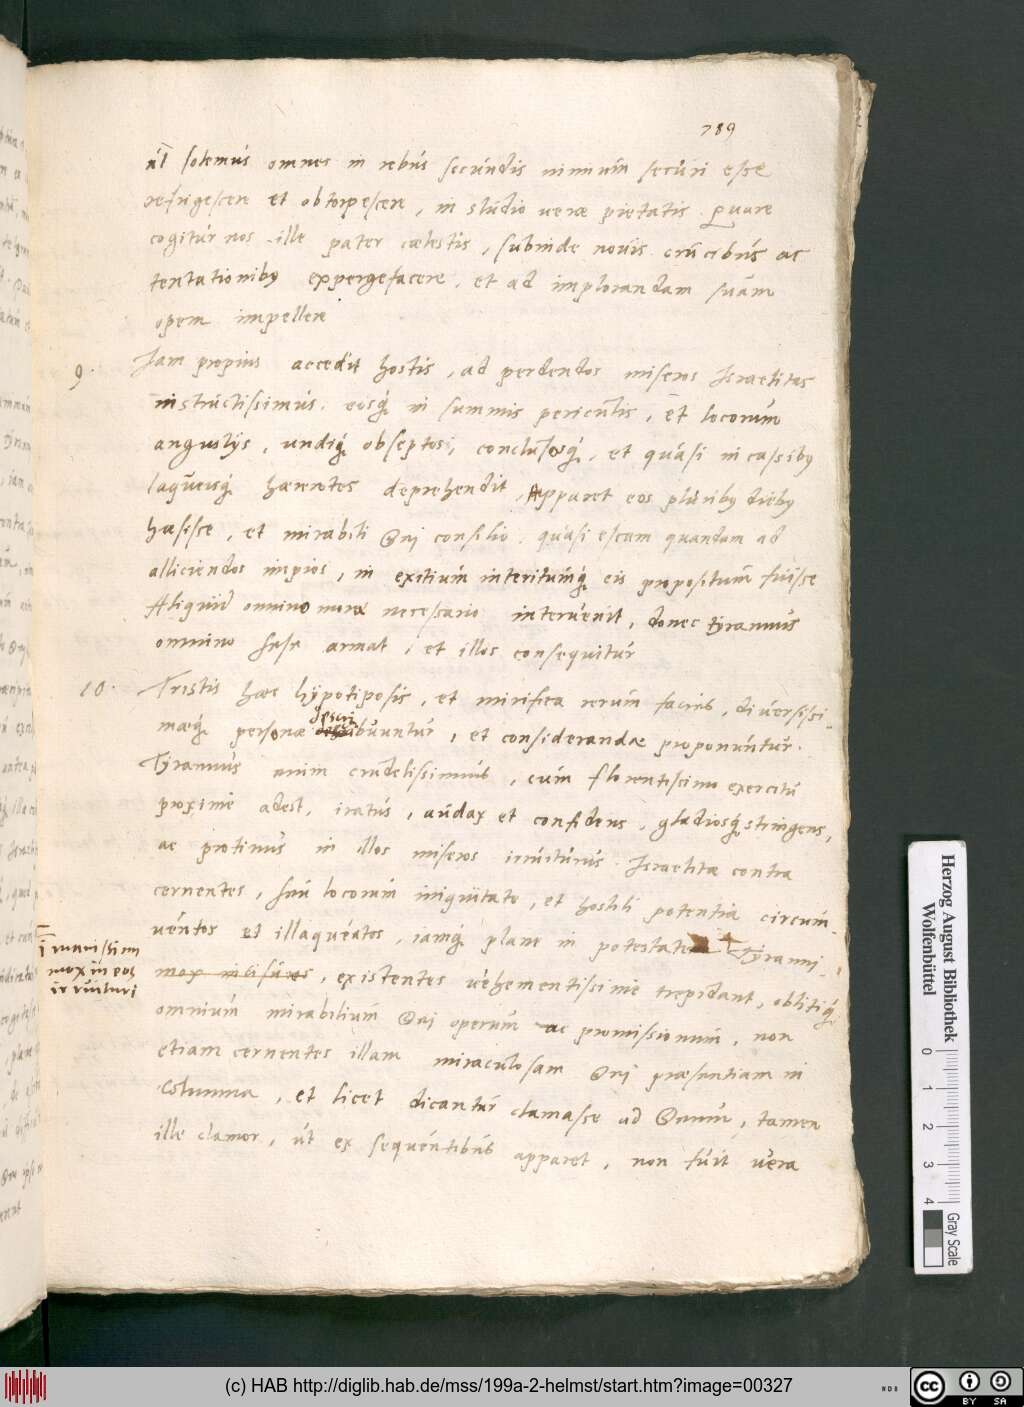 789
ut solemus omnes in rebus secundis nimium securi esse
refrigescere et obtorpescere, in studio veræ pietatis. Quare
cogitur nos ille pater cælestis, subinde novis crucibus ac
tentationibus expergefacere, et ad implorandam suam
opem impellere
9. Iam propius accedit hostis, ad perdendos miseros Israelitas
instructissimus. eosq́; in summis periculis, et locorum
angustijs, undiq́; obseptos, conclusosq́;, et quasi in cassibus
laqueisq́; hærentes deprehendit, Apparet eos pluribus diebus
hæsisse, et mirabili Dei consilio, quasi escam quandam ad
alliciendos impios, in exitium interitumq́; eis propositum fuisse
Aliquid omnino moræ necessario intervenit, donec tyrannus
omnino sese armat, et illos consequitur
10. Tristis hæc hypotiposis, et mirifica rerum facies, diversissi-
mæq́; personæ descri
ibuuntur, et considerandæ proponuntur.
Tyrannus enim crudelissimus, cum florentissimo exercitu
proxime adest, iratus, audax et confidens, gladiosq́; stringens,
ac protinus in illos miseros irruiturus. Israelitæ contra
cernentes, seu locorum iniquitate, et hostili potentia circum-
ventos et illaqueatos, iamq́; plane in potestate Tyranni-
immanissimi
mox in eos
irruituri
mox , existentes vehementissime trepidant, oblitiq́;
omnium mirabilium Dei operum ac promissionum, non
etiam cernentes illam miraculosam Dei præsentiam in
Columna, et licet dicantur clamasse ad Deum, tamen
ille clamor, ut ex sequentibus apparet, non fuit vera
Herzog August Bibliothek
Wolfenbüttel
0 1 2 3 4
Gray Scale
(c) HAB http://diglib.hab.de/mss/199a-2-helmst/start.htm?image=00327
NDB
cc BY SA